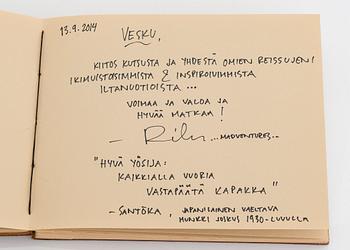 13.9.2014
VESKU,
KIITOS KUTSUSTA JA YHDESTÄ OMIEN REISSUJENI
IKIMUISTOISIMMISTA & INSPIROIVIMMISTA
ILTANUOTIOISTA...
VOIMAA JA VALOA JA
HYVÄÄ MATKAA!
– Riku ...MADVENTURES...
"HYVÄ YÖSIJA:
KAIKKIALLA VUORIA
VASTAPÄÄTÄ KAPAKKA"
– SANTŌKA, JAPANILAINEN VAELTAVA
MUNKKI JOSKUS 1930-LUVULLA